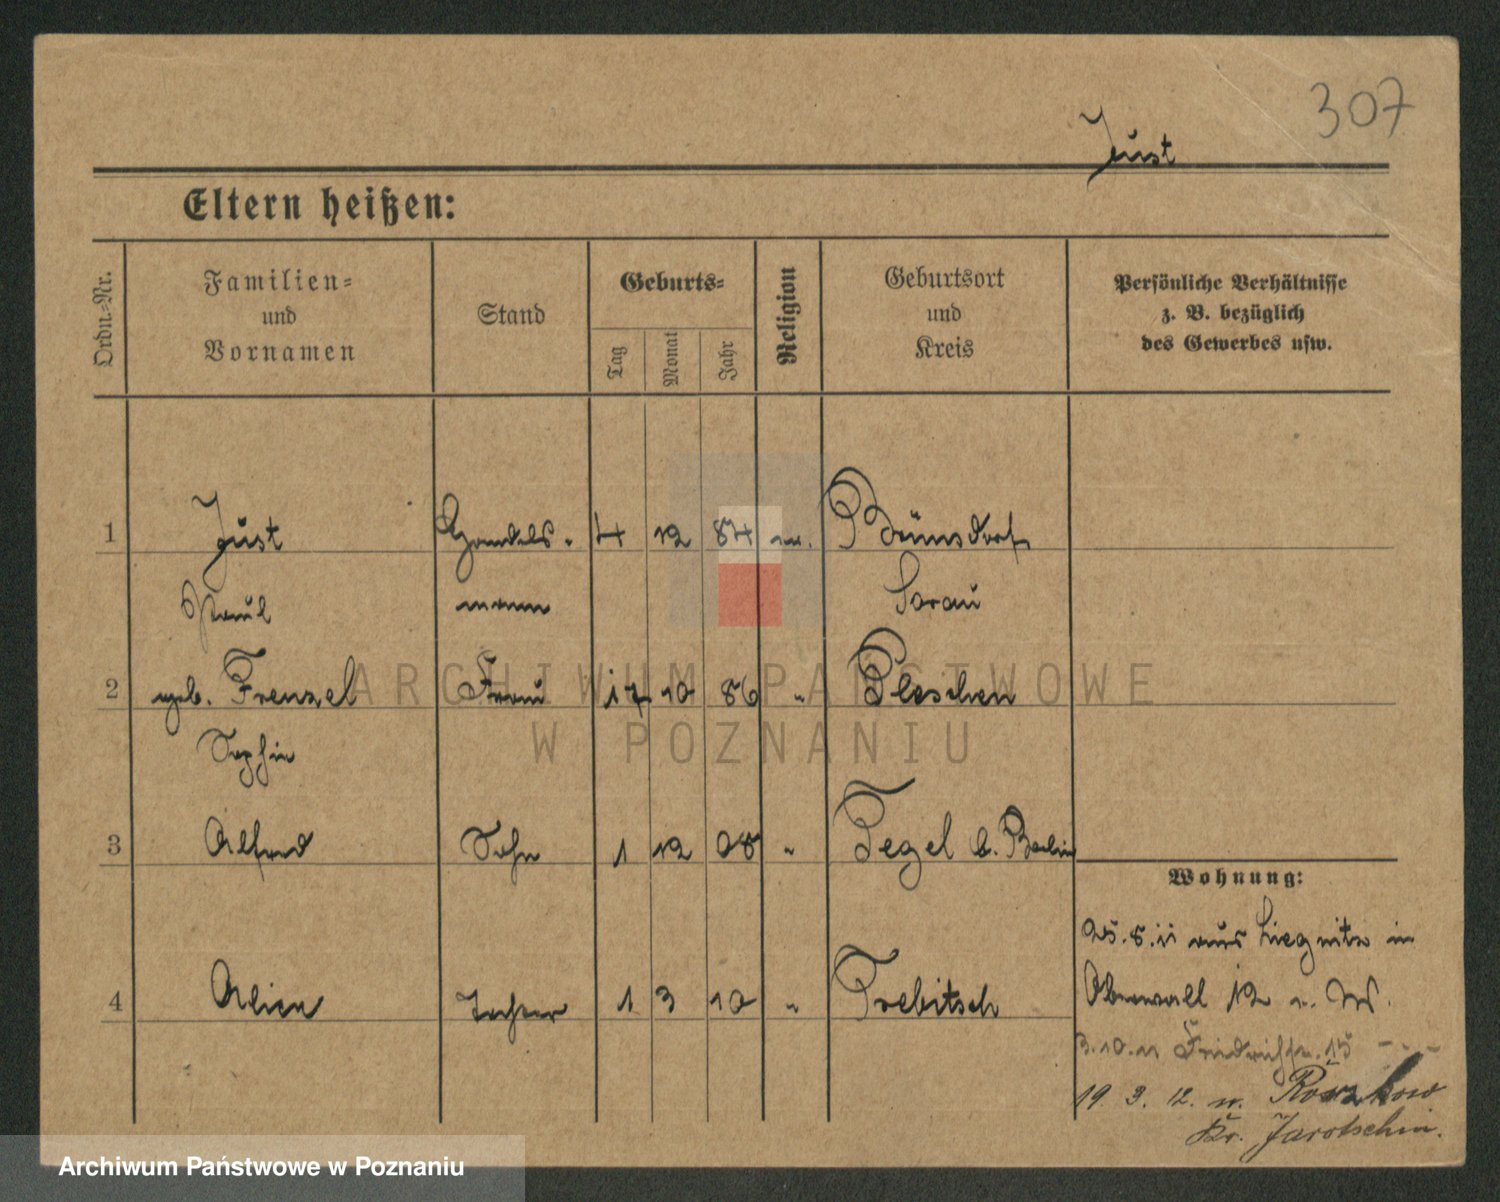 307
Just
Eltern heißen:
Ordn.-Nr.
Familien-
und
Vornamen
Stand
Geburts-
Tag
Monat
Jahr
Religion
Geburtsort
und
Kreis
Persönliche Verhältnisse
z. B. bezüglich
des Gewerbes usw.
1 Just Handels- 4 12 84 ev. Brünsdorf
Paul mann Sorau
2 geb. Frenzel Frau 17 10 86 " Pleschen
Sophie
3 Alfred Sohn 1 12 08 " Tegel b. Berlin
Wohnung:
25.8.11 aus Liegnitz in
4 Tochter 1 3 10 " Trebitsch
12
3.10.11 Friedrichstr. 15
19. 3. 12. n. Roszkow
Kr. Jarotschin.
ARCHIWUM PAŃSTWOWE
W POZNANIU
Archiwum Państwowe w Poznaniu